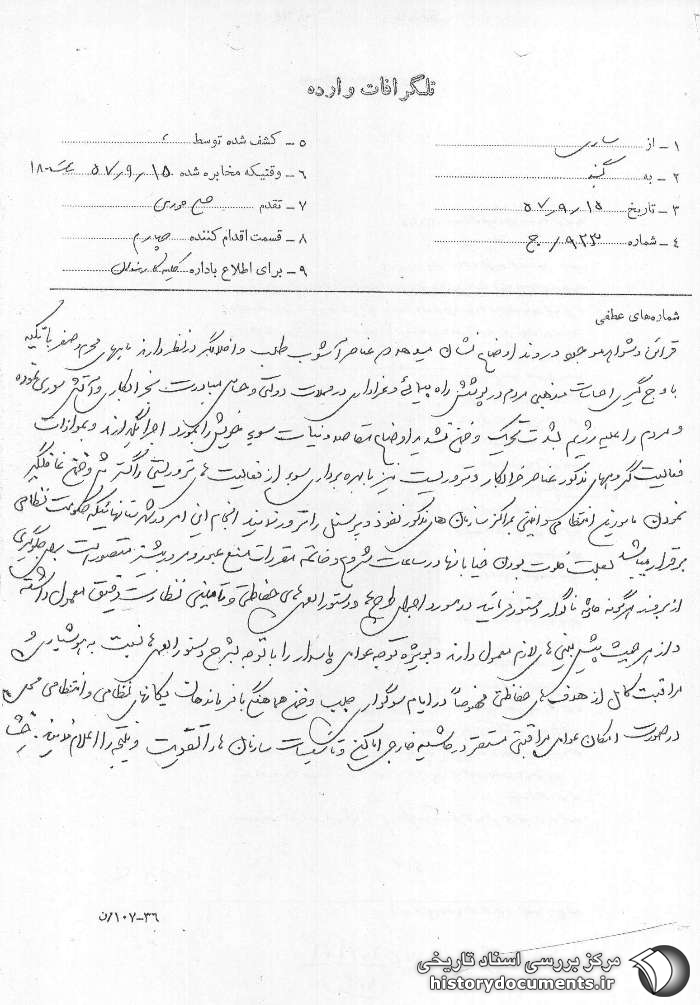 تلگرافات وارده
۱ – از ساری
۲ – به گنبد
۳ – تاریخ ۵۷٫۹٫۱۵
۴ – شماره ۹۲۳ ج
۵ – کشف شده توسط
۶ – وقتیکه مخابره شده ۵۷٫۹٫۱۵ ۱۸۰۰
۷ – تقدم خیلی فوری
۸ – قسمت اقدام کننده چهارم
۹ – برای اطلاع باداره
شماره‌های عطفی
قرائن و شواهد موجود و روند اوضاع نشان میدهد عناصر آشوب طلب و اخلالگر در نظر دارند ماههای محرم و صفر با تکیه
با اوج گیری احساسات مذهبی مردم در پوشش راه پیمائی و عزاداری در محلات دولتی و حساس مبادرت بخرابکاری و آتش سوزی نموده
و مردم را علیه رژیم بشدت تحریک و ضمن تشدید اوضاع مقاصد و نیات سوء خویش را بمورد اجرا بگذارند و بموازات
فعالیت گروههای مذکور عناصر خرابکار و تروریست نیز با بهره برداری سوء از فعالیت های تروریستی را گسترش و ضمن غافلگیر
نمودن مامورین انتظامی و امنیتی بمراکز سازمان های مذکور نفوذ و پرسنل را ترور نمایند انجام این امر در شهرستانهائیکه حکومت نظامی
برقرار میباشد بعلت خلوت بودن خیابانها در ساعات شروع و خاتمه مقررات منع عبور و مرور بیشتر متصور است بمنظور جلوگیری
از بروز هرگونه حادثه ناگوار دستور فرمائید در مورد اجرای طرح ها و دستورالعمل های حفاظتی و تامینی نظارت دقیق معمول داشته
و از هر حیث پیش بینی های لازم معمول دارند و بویژه توجه عوامل پاسدار را با توجه بشرح دستورالعمل ها نسبت به هوشیاری و
مراقبت کامل از هدف های حفاظتی مخصوصاً در ایام سوگواری جلب و ضمن هماهنگی با فرماندهان یگانهای نظامی و انتظامی محل
در صورت امکان عوامل مراقبتی مستقر در حاشیه خارجی اماکن و تاسیسات سازمان ها را تقویت و نتیجه را اعلام نمایند.
۳۶–۱۰۷/ن
مرکز بررسی اسناد تاریخی
historydocuments.ir